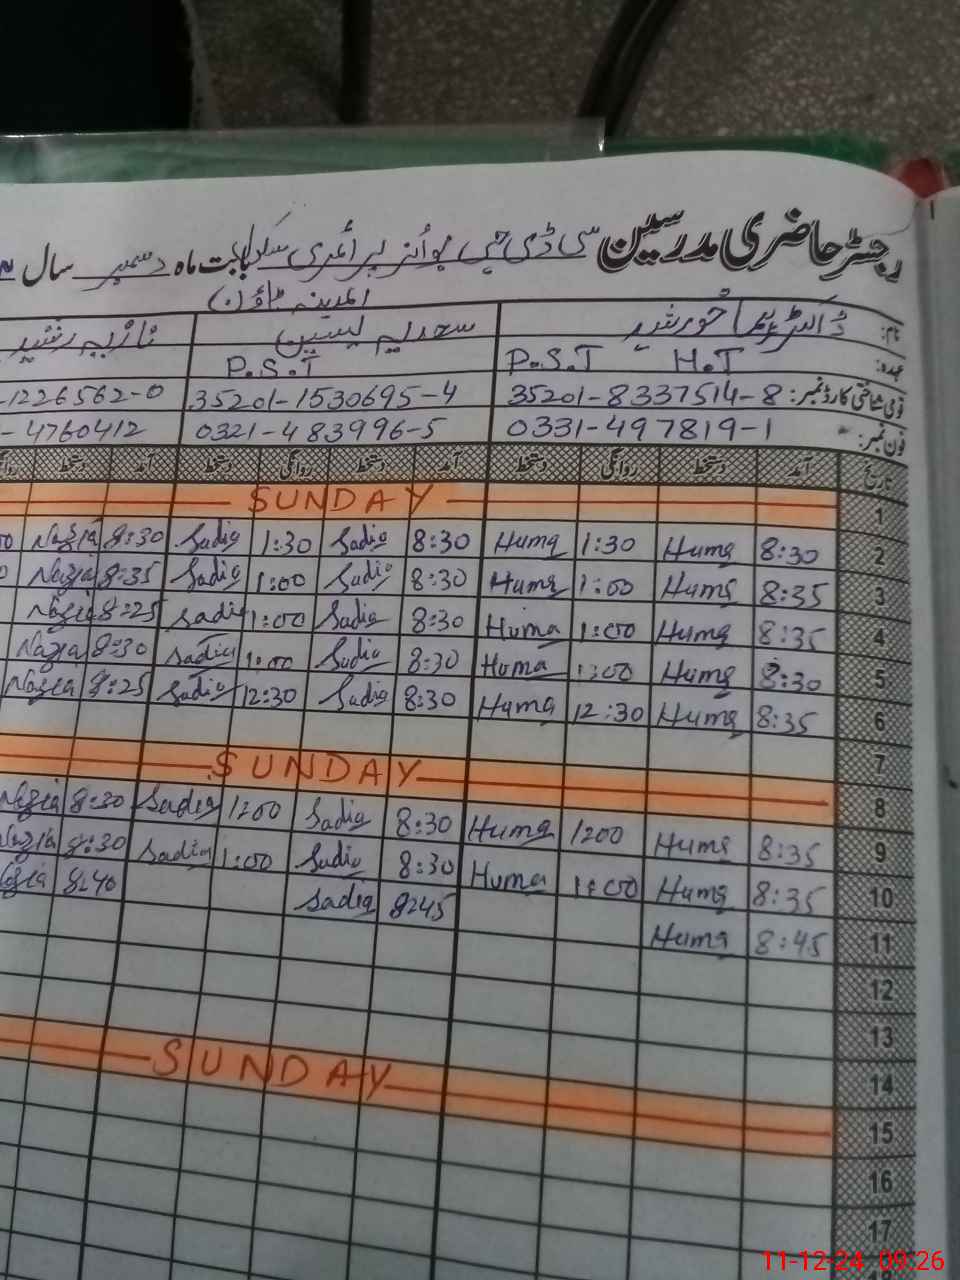 رجسٹر حاضری مدرسین سی ڈی جی بوائز پرائمری سکول بابت ماہ دسمبر سال
المدینہ ٹاؤن
نام: ڈاکٹر ہما خورشید سعدیہ یسین نازیہ رشید
عہدہ: P.S.T H.T P.S.T
قومی شناختی کارڈ نمبر: 35201-8337514-8 35201-1530695-4 -1226562-0
فون نمبر: 0331-497819-1 0321-483996-5 -4760412
تاریخ آمد دستخط روانگی دستخط آمد دستخط روانگی دستخط آمد دستخط روانگی
1 SUNDAY
2 8:30 Huma 1:30 Huma 8:30 Sadia 1:30 Sadia 8:30 Nazia 00
3 8:35 Huma 1:00 Huma 8:30 Sadia 1:00 Sadia 8:35 Nazia 0
4 8:35 Huma 1:00 Huma 8:30 Sadia 1:00 Sadia 8:25 Nazia
5 8:30 Huma 1:00 Huma 8:30 Sadia 1:00 Sadia 8:30 Nazia
6 8:35 Huma 12:30 Huma 8:30 Sadia 12:30 Sadia 8:25 Nazia
7
8 SUNDAY
9 8:35 Huma 1200 Huma 8:30 Sadia 1200 Sadia 8:30 Nazia
10 8:35 Huma 1:00 Huma 8:30 Sadia 1:00 Sadia 8:30 Nazia
11 8:45 Huma 8:45 Sadia 8:40 Nazia
12
13
14
15 SUNDAY
16
17
11-12-24 09:26